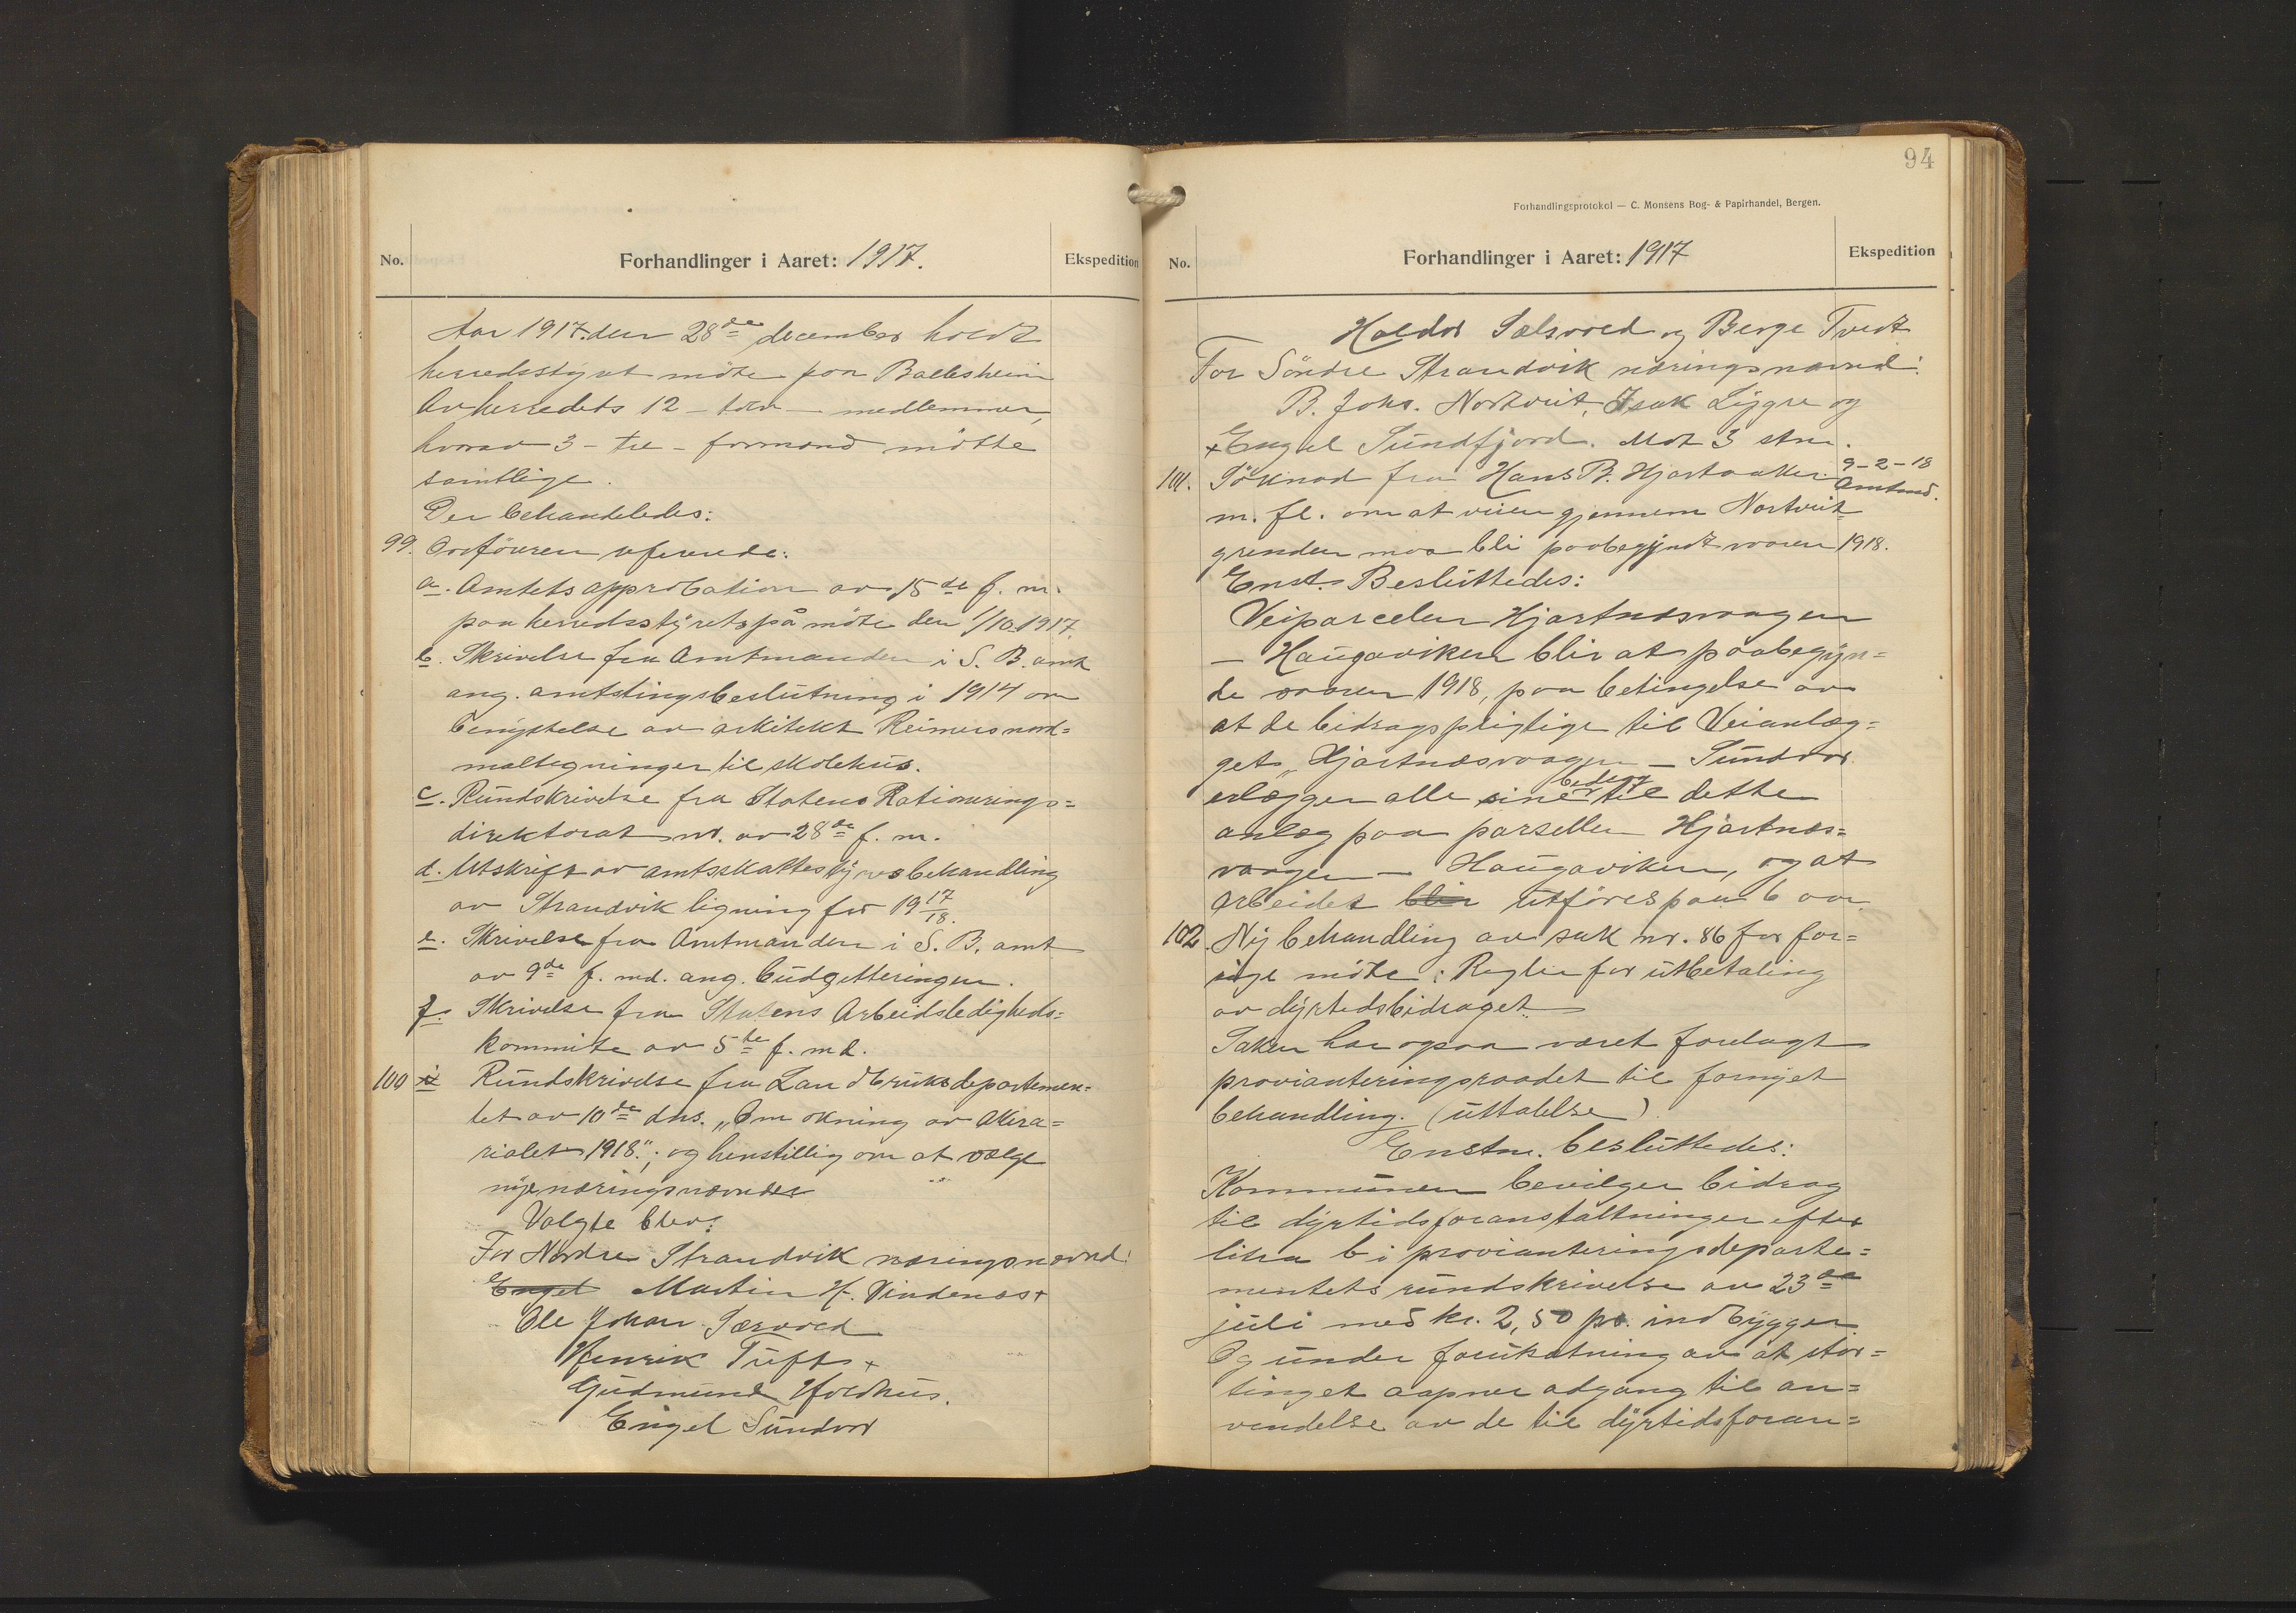 No.
Forhandlinger i Aaret: 1917.
Ekspedition
Aar 1917. den 28de december holdt
herredsstyret möte paa Ballesheim
Av herredets 12 - tolv - medlemmer,
hvorav 3 - tre - formænd mötte
samtlige.
Der behandledes:
99. Ordföreren refererte:
a. Amtets approbation av 15de f. m.
paa herredsstyrets på möte den 1/10 1917.
b. Skrivelse fra Amtmanden i S. B. amt
ang. amtstingsbeslutning i 1914 om
benyttelse av arkitekt Reimers nord=
maltegninger til skolehus.
c. Rundskrivelse fra Statens Rationerings=
direktorat nr. av 28de f. m.
d. Utskrift av amtsskattestyres behandling
av Strandvik ligning for 19 17/18.
e. Skrivelse fra Amtmanden i S. B. amt
av 9de f. md. ang. budgetteringen.
f. Skrivelse fra Statens Arbeidsledigheds=
kommite av 5te f. md.
100 Rundskrivelse fra Landbruksdepartemen=
tet av 10de ds. „Om økning av Akera=
rialet 1918."; og henstillig om at vælge
nye næringsnævnder
Valgte blev:
For Nordre Strandvik næringsnævnd:
Engel Martin H. Vindenes +
Ole Johan Særvold
Henrik Tuft +
Gudmund Holdhus.
Engel Sundvor
94
Forhandlingsprotokol — C. Monsens Bog- & Papirhandel, Bergen.
No.
Forhandlinger i Aaret: 1917
Ekspedition
Haldor Sælsvold og Berge Tvedt
For Söndre Strandvik næringsnævnd:
B. Johs. Nortveit, Isak Lygre og
+ Engel Sundfjord. Mot 3 stm.
101. Söknad fra Hans B. Hjartaaker
9-2-18
Amtmd.
m. fl. om at veien gjennem Nortveit
grenden maa bli paabegyndt vaaren 1918.
Enst. Besluttedes:
Veiparcelen Hjartnesvaagen
— Haugaviken blir at paabegyn=
de vaaren 1918, paa betingelse av
at de bidragspligtige til Veianlæg=
get „Hjartnæsvaagen — Sundvor
erlægger alle sine bidrag til dette
anlæg paa parsellen Hjartnæs=
vaagen — Haugaviken, og at
arbeidet blir utföres paa 6 aar.
102. Ny behandling av sak nr. 86 for for=
rige möte: Regler for utbetaling
av dyrtidsbidraget.
Saken har ogsaa været forelagt
provianteringsraadet til fornyet
behandling. (uttalelse).
Enstm. besluttedes:
Kommunen bevilger bidrag
til dyrtidsforanstaltninger efter
litra b i provianteringsdeparte=
mentets rundskrivelse av 23de
juli med kr. 2,50 pr. indbygger.
Og under forutsætning av at stor=
tinget aapner adgang til an=
vendelse av de til dyrtidsforan=